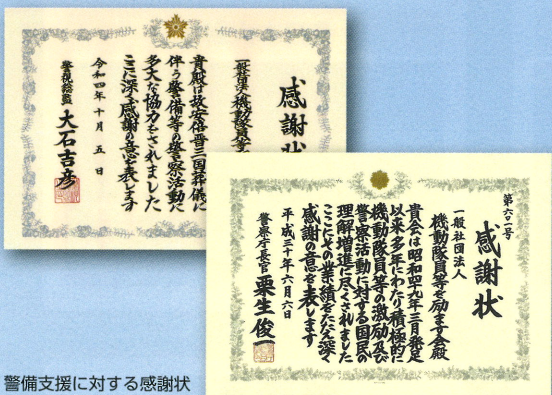 感謝状
一般社団法人機動隊員等
貴殿は故安倍晋三国葬儀に
伴う警備等の警察活動に
多大な協力をされました
ここに深く感謝の意を表します
令和四年十月五日
警視総監 大石吉彦
第六〇一号
感謝状
一般社団法人
機動隊員等を励ます会殿
貴会は昭和四十九年三月発足
以来多年にわたり積極的に
機動隊員等の激励及び
警察活動に対する国民の
理解増進に尽くされました
ここにその業績をたたえ深く
感謝の意を表します
平成三十年六月六日
警察庁長官 栗生俊一
警備支援に対する感謝状